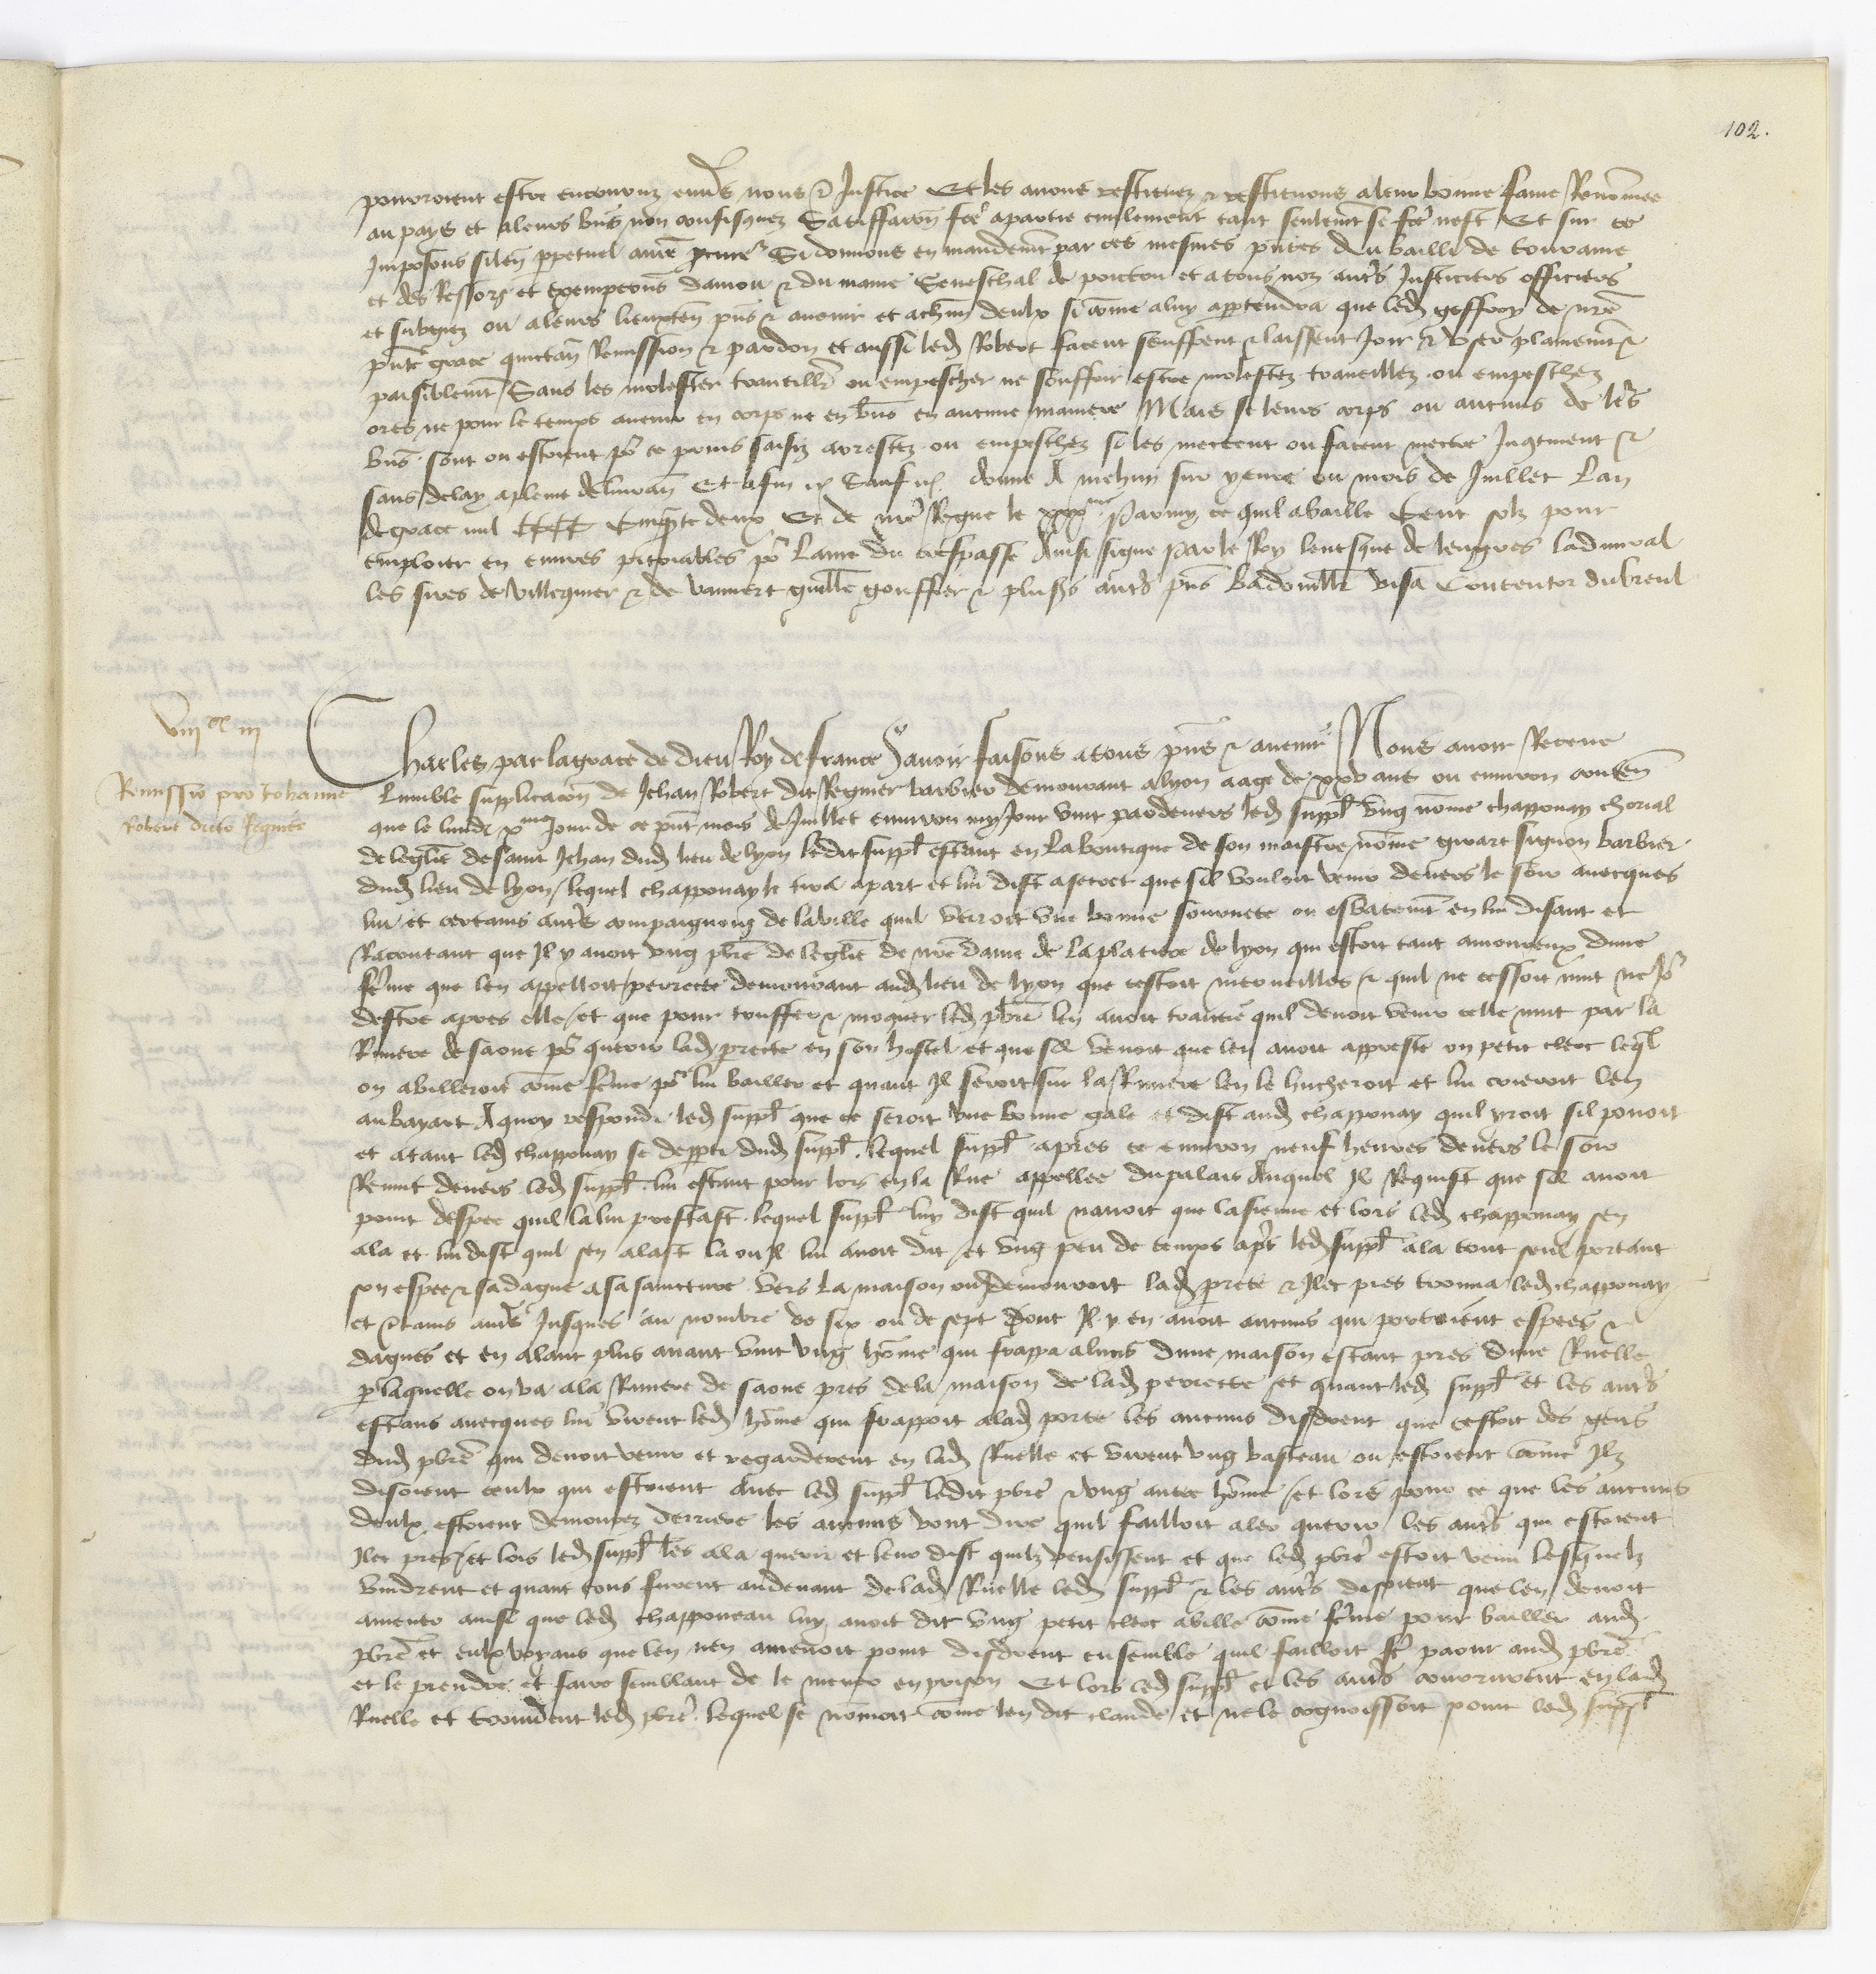 102.
pourroient estre encouruz enves nous & Justice Et les avons restituez & restituons a leur bonne fame Renommee
au pays et a leurs bns non confisquez Satisfacon fce a partie civilement tant seulemt se fce nest Et sur ce
Imposons silen perpetuel a nre procur Si donnons en mandemt par ces mesmes pntes Au bailli de touraine
et des Ressors et exempcons danjou & du maine Seneschal de poictou et a tous noz autrs Justiciers officiers
et subgez ou a leurs lieuxten pns & avenir et a chun deulx si come a luy appartendra que led geffroy de nre
pnte grace quictan Remission & pardon et aussi led Robert facent seuffrent & laissent Joir & user plainemt &
paisiblemt Sans les molester travaillr ou empescher ne souffrir estre molestez travaillez ou empeschez
ores ne pour le temps avenir en corps ne en bns en aucune maniere Mais se leurs corps ou aucuns de lrs
bns sont ou estoient po ce prins saisiz arrestez ou empeschez si les mectent ou facent mectre Jncment &
sans delay a pleine delivran Et afin &c Sauf &c donne A mehun sur yevre ou mois de Juillet Lan
de grace mil CCCC Cinqte deux Et de nre Regne le xxxme Parmy ce quil a baille Cent solz pour
emploier en euvres pitoiables po Lame du trespasse Ainsi signe Par le Roy levesque de lengres ladmiral
les sires de villequier & de vauvert guille gouffier & plusrs autrs pns Badouillr visa Contentor dubreul
viii xx iii
Remissio pro Johanne
Robert dicto Regnier
Charles par la grace de dieu Roy de france Savoir faisons a tous pns & avenir Nous avoir Receue
Lumble supplicacon de Jehan Robert dit Regnier barbier demourant a lyon aage de xxv ans ou environ conten
que le lundi xme Jour de ce pnt mois de Juillet environ my Jour vint pardevers led suppl ung nome chapponay chorial
de leglise de saint Jehan dud lieu de lyon ledit suppl estant en la boutique de son maistre nome girart signon barbier
dud lieu de lyon / lequel chapponay le tira a part et lui dist a secret que sil vouloit venir devers le soir avecques
lui et certains autrs compaignons de la ville quil verroit une bonne sornete ou esbatemt en lui disant et
Racontant que Il y avoit ung pbre de leglise de nre dame de la platiere de lyon qui estoit tant amoureux dune
feme que len appelloit / perrecte demourant aud lieu de lyon que cestoit merveilles & quil ne cessoit nuit ne Jor
destre apres elle / et que pour truffer & moquer led pbre len avoit traictie quil devoit venir celle nuit par la
Riviere de saone po querir lad prrecte en son hostel et que sil venoit que len avoit appreste un petit clerc leql
on abilleroit come feme po lui bailler et quant Il seroit sur la Riviere len le hucheroit et lui crieroit len
au bayart A quoy respondi led suppl que ce seroit une bonne gale et dist aud chapponay quil yroit sil povoit
et atant led chapponay se departi dud suppl lequel suppl apres ce environ neuf heures devers le soir
Revint devers led suppl lui estant pour lors en la Rue appellee du palais Auquel Il Requist que sil avoit
point despee quil la lui prestast lequel suppl luy dist quil navoit que la sienne et lors led chapponay sen
ala et lui dist quil sen alast la ou Il lui avoit dit et ung peu de temps aprs led suppl ala tout seul portant
son espee & sa dague a sa saincture vers la maison ou demouroit lad perrete & Ilec pres trouva led chapponay
et certains autrs Jusques au nombre de six ou de sept Dont Il y en avoit aucuns qui portoient espees &
dagues et en alant plus avant vint ung home qui frappa a luis dune maison estant pres dune Ruelle
par laquelle on va a la Riviere de saone pres de la maison de lad perrecte et quant led suppl et les autrs
estans avecques lui virent led home qui frappoit a lad porte les aucuns disdrent que cestoit des gens
dud pbre qui devoit venir et regarderent en lad Ruelle et virent ung basteau ou estoient come Ilz
disoient ceulx qui estoient avec led suppl ledit pbre & ung autre home / et lors pour ce que les aucuns
deulx estoient demourez derriere les aucuns vont dire quil failloit aler querir les autrs qui estoient
Ilec pres / et lors led suppl les ala querir et leur dist quilz venissent et que led pbre estoit venu lesquelz
vindrent et quant tous furent au devant de lad Ruelle led suppl & les autrs disoient que len devoit
amener ainsi que led chapponeau luy avoit dit ung petit clerc abille come feme pour bailler aud
pbre et eulx voyans que len nen amenoit point disdrent ensemble quil failloit fe paour aud pbre
et le prendre et faire semblant de le mener en prison Et lors led suppl et les autrs coururent en lad
Ruelle et trouverent led pbre lequel se nomoit come len dit claude et ne le cognoissoit point led suppl